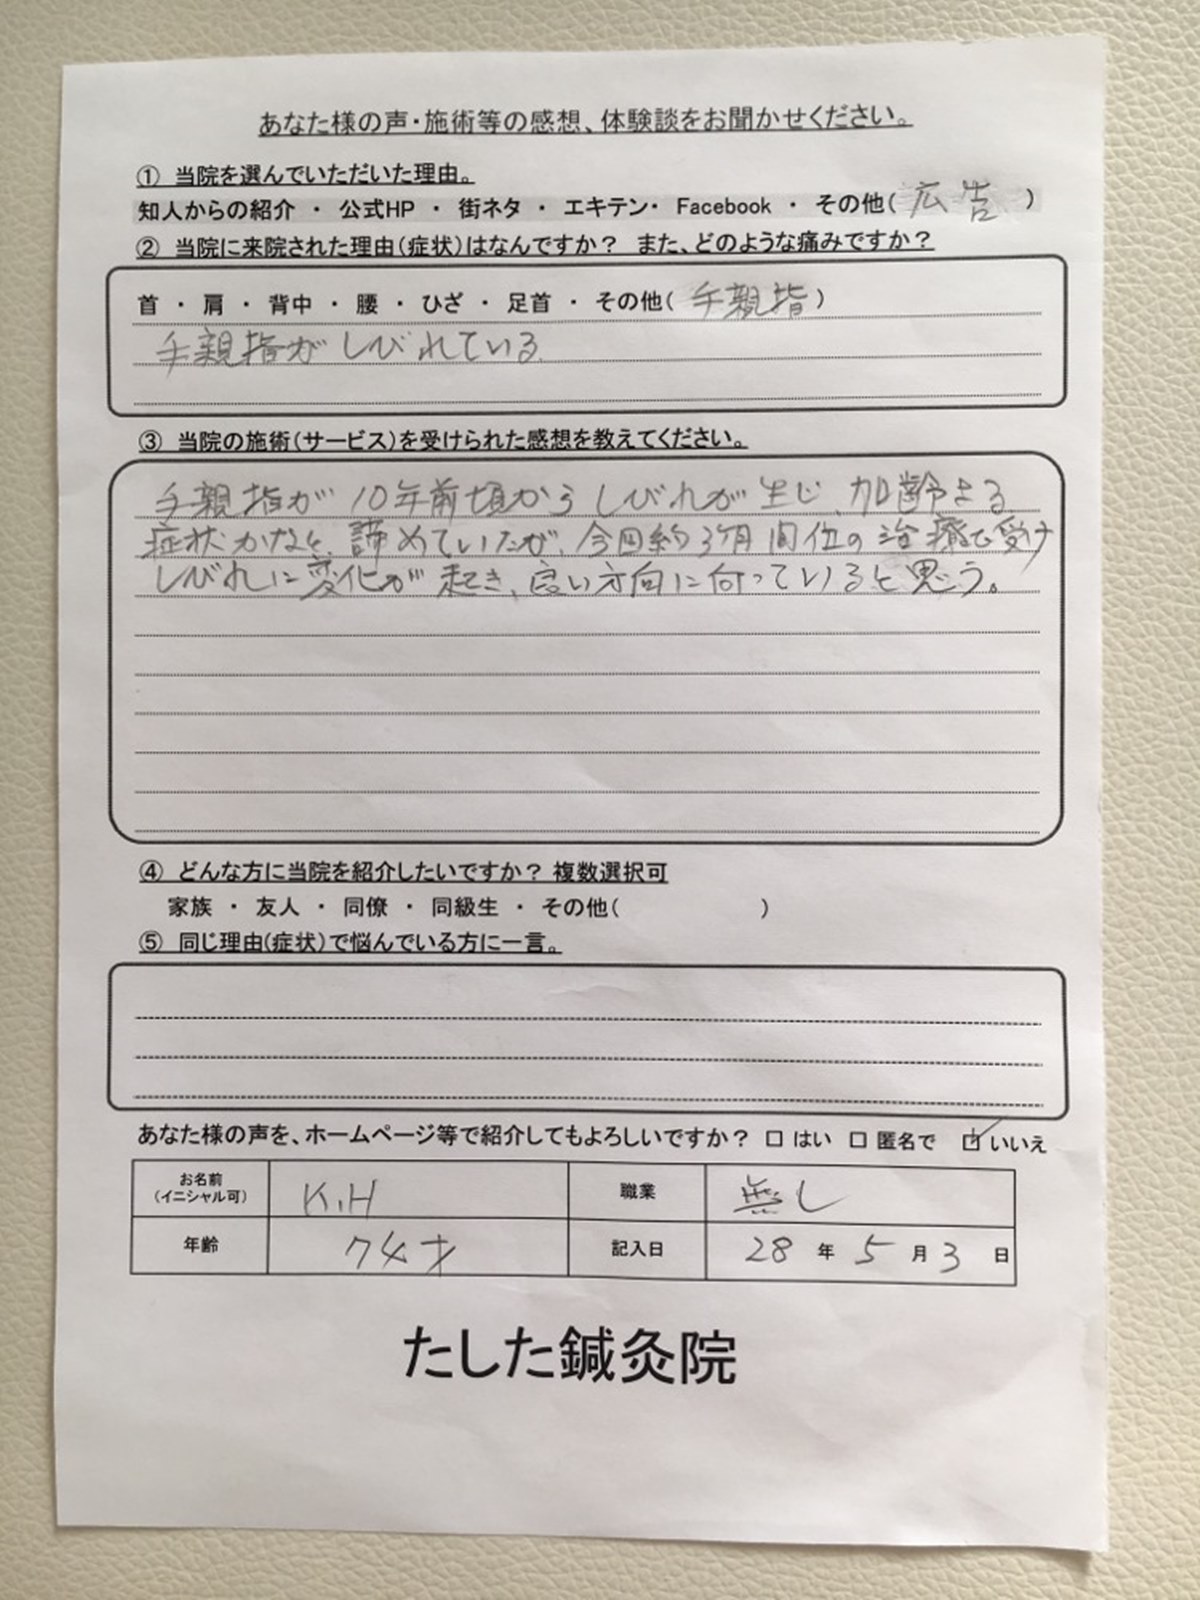 あなた様の声・施術等の感想、体験談をお聞かせください。
① 当院を選んでいただいた理由。
知人からの紹介 ・ 公式HP ・ 街ネタ ・ エキテン・ Facebook ・ その他( 広告 )
② 当院に来院された理由(症状)はなんですか? また、どのような痛みですか?
首 ・ 肩 ・ 背中 ・ 腰 ・ ひざ ・ 足首 ・ その他( 手親指 )
手親指がしびれている
③ 当院の施術(サービス)を受けられた感想を教えてください。
手親指が10年前頃からしびれが生じ、加齢
症状かなと、諦めていたが、今回約3ヶ月間位の治療を受け
しびれに変化が起き、良い方向に向っていると思う。
④ どんな方に当院を紹介したいですか? 複数選択可
家族 ・ 友人 ・ 同僚 ・ 同級生 ・ その他( )
⑤ 同じ理由(症状)で悩んでいる方に一言。
あなた様の声を、ホームページ等で紹介してもよろしいですか? □ はい □ 匿名で ☑ いいえ
お名前 (イニシャル可) K.H 職業 無し
年齢 74才 記入日 28 年 5 月 3 日
たした鍼灸院